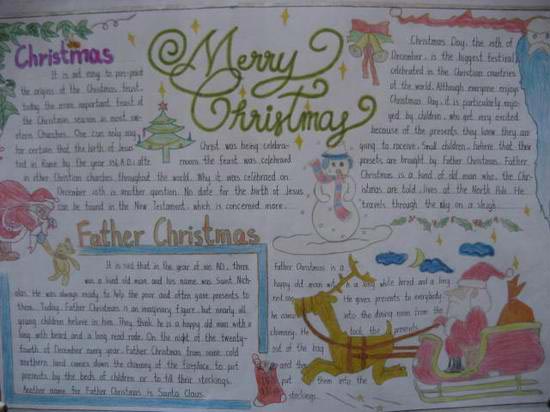 Christmas
It is not easy to pin-point
the origins of the Christmas feast,
today the most important feast of
the Christmas season in most we-
stern Churches. One can only say
for certain that the birth of Jesus
Christ was being celebra-
ted in Rome by the year A.D.;
moreon the feast was celebrated
in other Christian churches throughout the world. Why it was celebrated on
December 25th is another question. No date for the birth of Jesus
can be found in the New Testament, which is concerned more
Merry
Christmas
Christmas Day, the 25th of
December, is the biggest festival
celebrated in the Christian countries
of the world. Although everyone enjoys
Christmas Day, it is particularly enjo-
yed by children, who get very excited
because of the presents they know they are
going to receive. Small children believe that their
presents are brought by Father Christmas. Father
Christmas is a kind of old man who, the Chi-
stmas are told, lives at the North Pole. He
travels through the sky on a sleigh
Father Christmas
It is said that in the year of AD, there
was a kind old man and his name was Saint Nich-
olas. He was always ready to help the poor and often gave presents to
them. Today, Father Christmas is an imaginary figure, but nearly all
young children believe in him. They think he is a happy old man with a
long with beard and a long read robe. On the night of the twenty-
fourth of December every year, Father Christmas from some cold
northern land comes down the chimney of the fireplace to put
presents by the beds of children or to fill their stockings.
Another name for Father Christmas is Santa Claus.
Father Christmas is a
happy old man with a long white beard and a long
red coat. He gives presents to everybody
he comes into the dining room from the
chimney. He took the presents
out of the bag
and the
put them into the
stockings